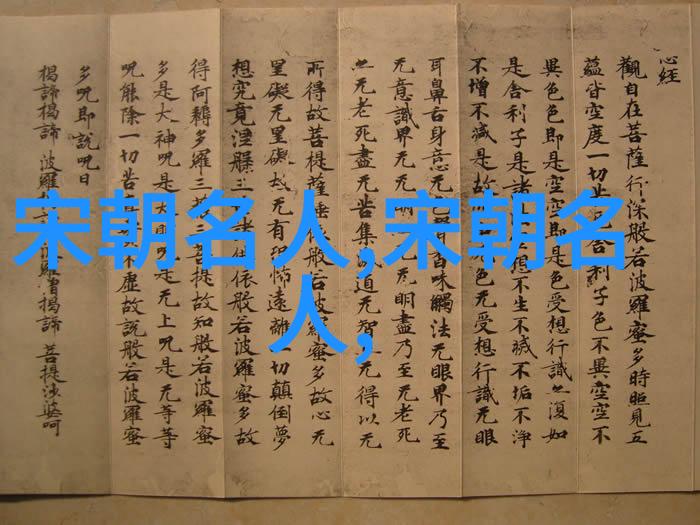 宋朝名人,宋朝名
人,
心經
觀自在菩薩行深般若波羅蜜多時照見五
蘊皆空度一切舍利子色不異空空不
異色色即是空空即是色受想行識亦復如
是舍利子是諸想不生不滅不垢不淨
不增不减是故色无受想行識无眼
耳鼻舌身意无香味觸法无眼界乃至
无意識界无无明无明盡乃至无老死
亦无老死盡无苦集滅道无智无得以无
所得故菩提薩埵依般若波羅蜜多故心无
罣礙无罣礙故无有恐怖遠離一切顛倒夢
想究竟涅槃三依般若波羅蜜多故
得阿耨多羅三三菩提故知般若波羅蜜
多是大神呪是大明呪是无上呪是无等等
呪能除一切苦不虛故說般若波羅蜜
多呪即說呪曰
揭諦揭諦 波羅羅僧揭諦 菩提娑婆呵